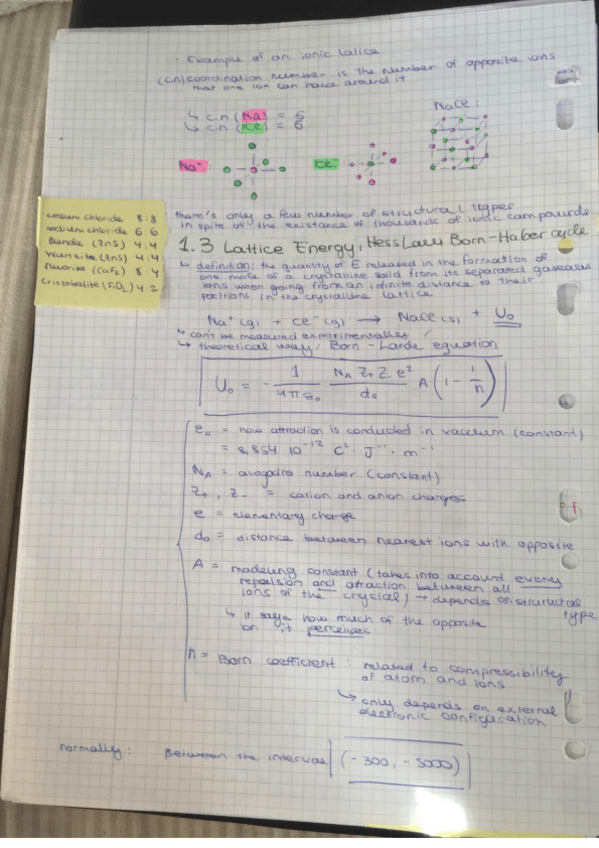 · Example of an ionic latice
(c.n) coordination number is the number of opposite ions
that one ion can have around it
↳ c.n (Na) = 6
↳ c.n (Cl) = 6
NaCl:
Na⁺:
Cl⁻
there's only a few number of structural types
in spite of the existance of thousands of ionic compounds
cesium chloride 8:8
sodium chloride 6:6
Blende (ZnS) 4:4
Wurtzite (ZnS) 4:4
fluorite (CaF₂) 8:4
Cristobalite (SiO₂) 4:2
1.3 Lattice Energy, Hess Law, Born-Haber cycle
↳ definition: the quantity of E released in the formation of
one mole of a crystalline solid from its separated gaseous
ions when going from an infinite distance to their
positions in the crystalline lattice
Na⁺(g) + Cl⁻(g) → NaCl(s) + U₀
↳ can't be measured experimentally
↳ theoretical way: Born-Lande equation
U₀ = - 1/(4πε₀) · (N_A Z₊ Z e²)/d₀ · A (1 - 1/n)
ε₀ = how attraction is conducted in vaccum (constant)
= 8,854 · 10⁻¹² C² · J⁻¹ · m⁻¹
N_A = avogadro number (constant)
Z₊, Z₋ = cation and anion charges
e = elementary charge
d₀ = distance between nearest ions with opposite
A = madelung constant (takes into account every
repulsion and attraction between all
ions of the crystal) → depends on structural
type
↳ it says how much of the opposite
ion it perceives
n = Born coefficient: related to compressibility
of atom and ions
↳ only depends on external
electronic configuration
normally: Between the interval (-300, -5000)